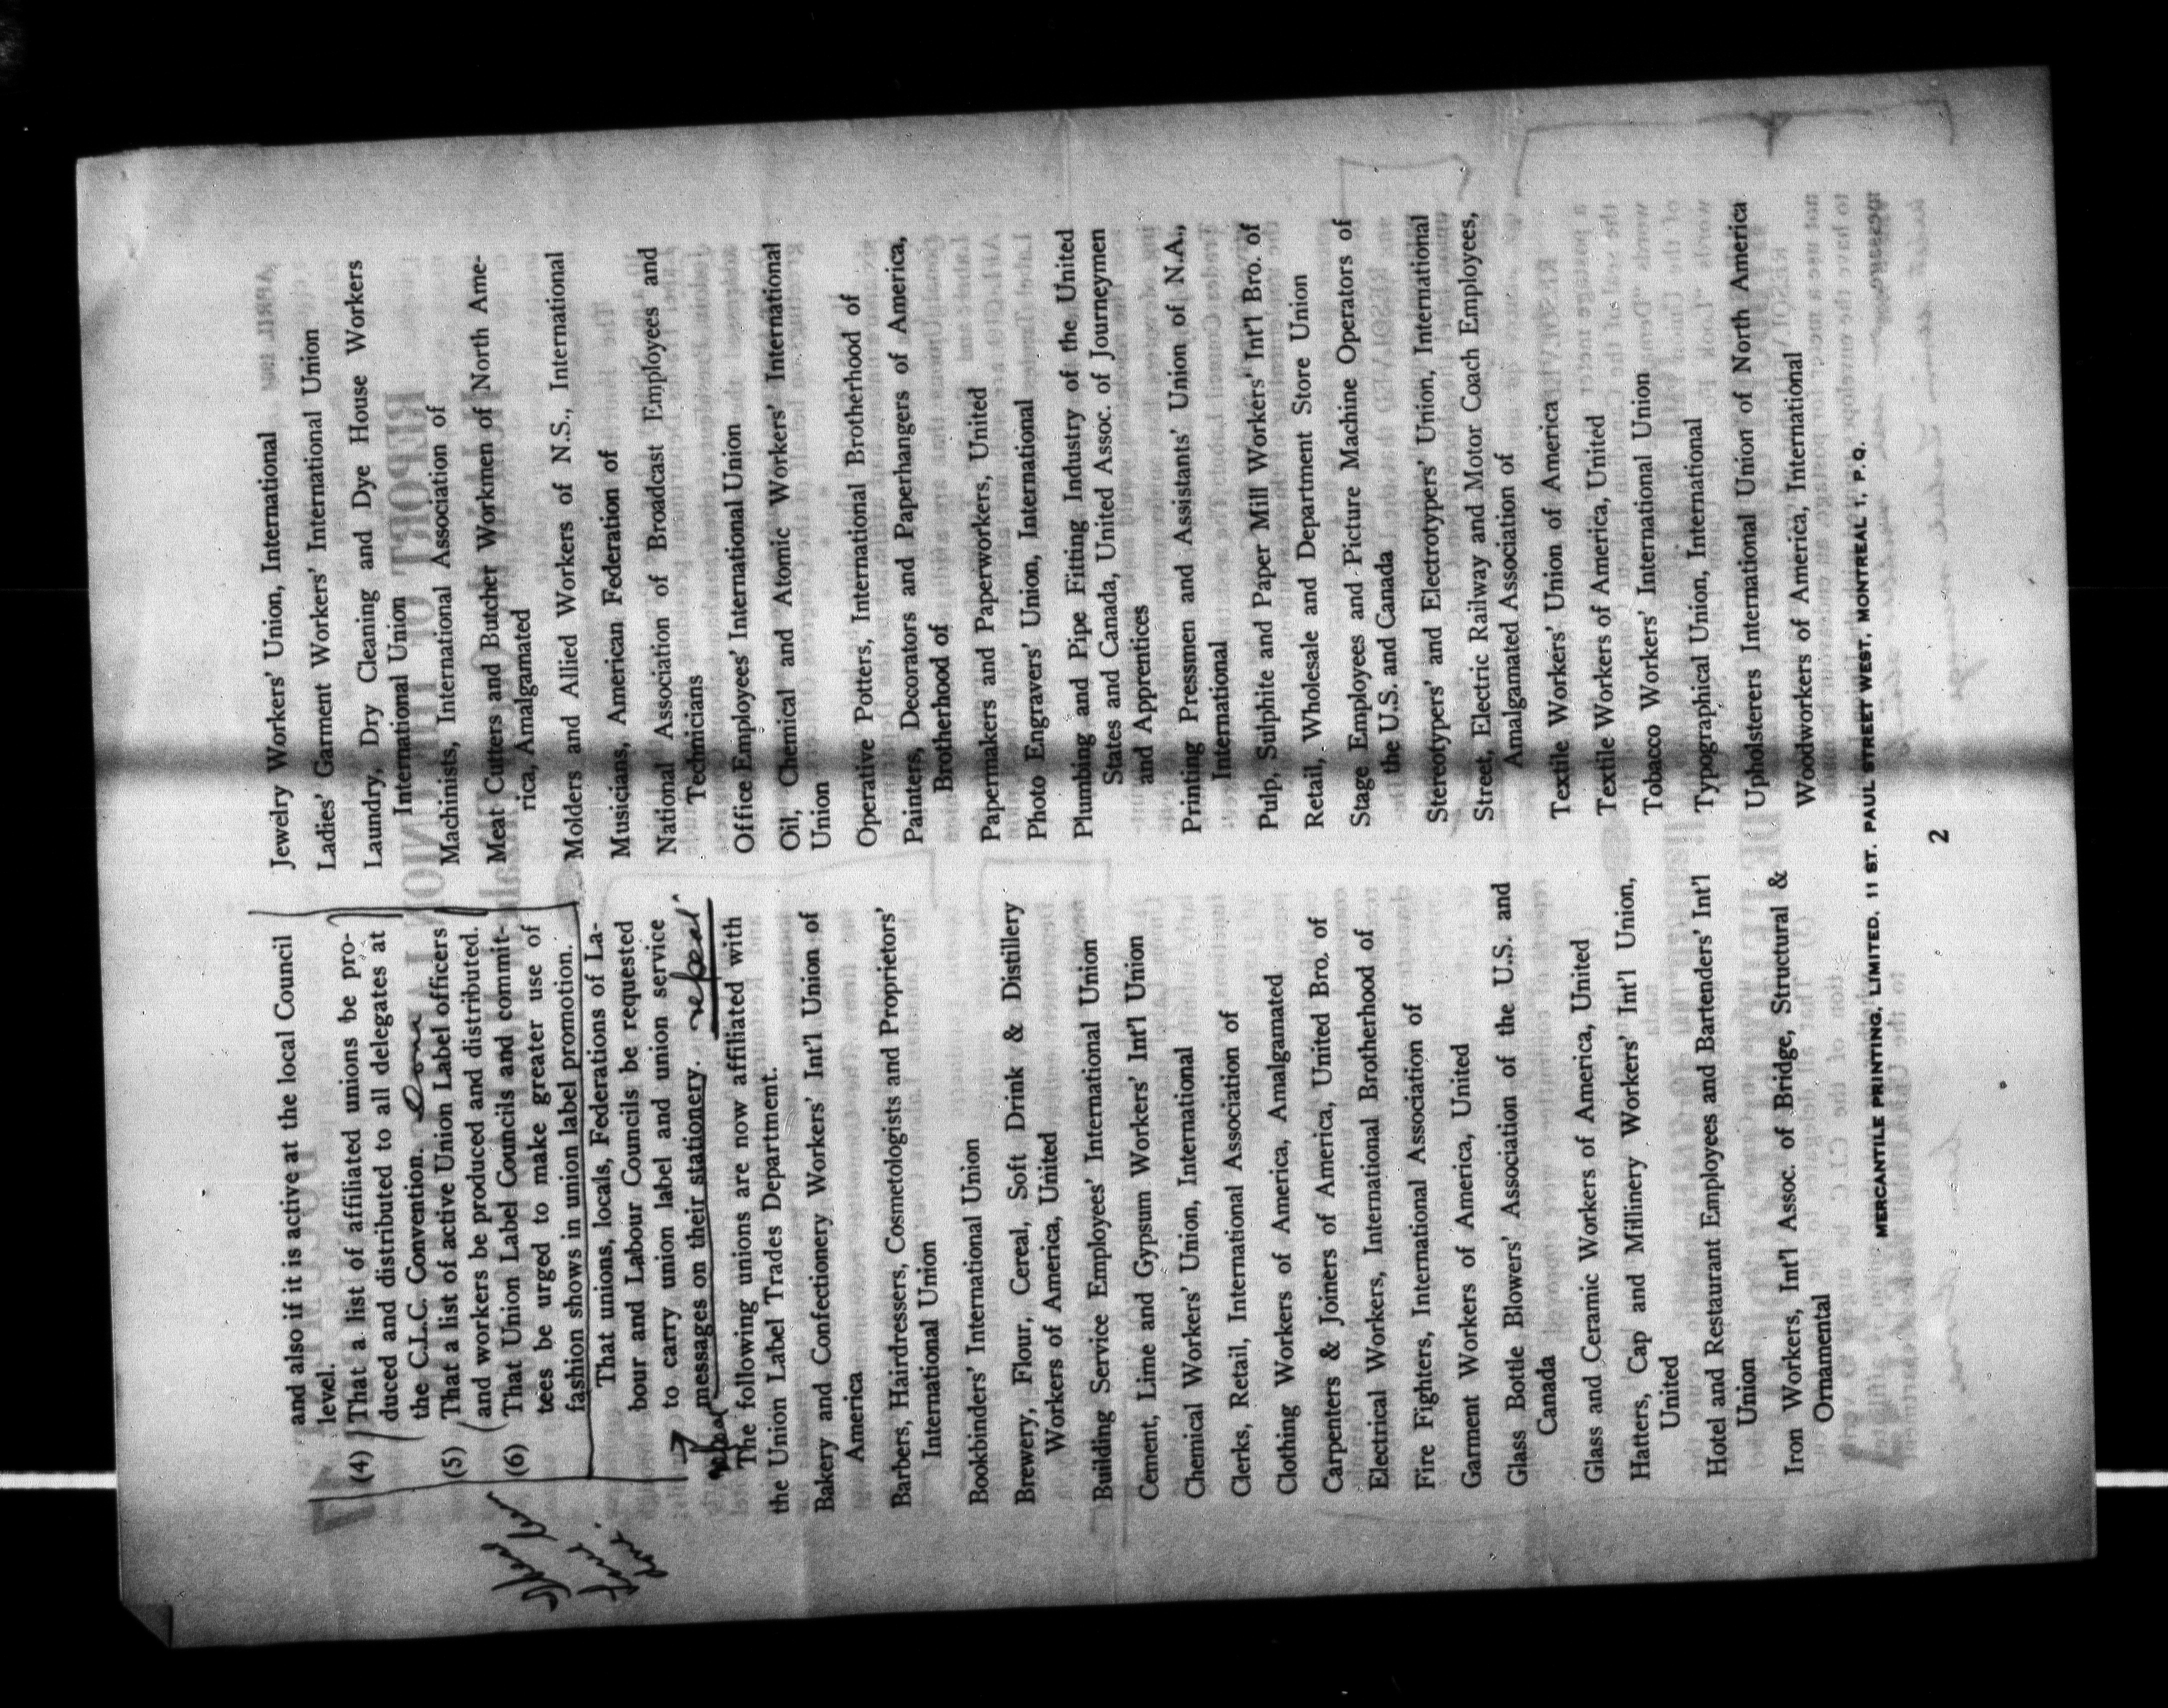 and also if it is active at the local Council
level.
(4) That a list of affiliated unions be pro-
duced and distributed to all delegates at
the C.L.C. Convention. Done
(5) That a list of active Union Label officers
and workers be produced and distributed.
(6) That Union Label Councils and commit-
tees be urged to make greater use of
fashion shows in union label promotion.
That unions, locals, Federations of La-
bour and Labour Councils be requested
to carry union label and union service
messages on their stationery. repeal
The following unions are now affiliated with
the Union Label Trades Department.
Bakery and Confectionery Workers' Int'l Union of
America
Barbers, Hairdressers, Cosmetologists and Proprietors'
International Union
Bookbinders' International Union
Brewery, Flour, Cereal, Soft Drink & Distillery
Workers of America, United
Building Service Employees' International Union
Cement, Lime and Gypsum Workers' Int'l Union
Chemical Workers' Union, International
Clerks, Retail, International Association of
Clothing Workers of America, Amalgamated
Carpenters & Joiners of America, United Bro. of
Electrical Workers, International Brotherhood of
Fire Fighters, International Association of
Garment Workers of America, United
Glass Bottle Blowers' Association of the U.S. and
Canada
Glass and Ceramic Workers of America, United
Hatters, Cap and Millinery Workers' Int'l Union,
United
Hotel and Restaurant Employees and Bartenders' Int'l
Union
Iron Workers, Int'l Assoc. of Bridge, Structural &
Ornamental
Jewelry Workers' Union, International
Ladies' Garment Workers' International Union
Laundry, Dry Cleaning and Dye House Workers
International Union
Machinists, International Association of
Meat Cutters and Butcher Workmen of North Ame-
rica, Amalgamated
Molders and Allied Workers of N.S., International
Musicians, American Federation of
National Association of Broadcast Employees and
Technicians
Office Employees' International Union
Oil, Chemical and Atomic Workers' International
Union
Operative Potters, International Brotherhood of
Painters, Decorators and Paperhangers of America,
Brotherhood of
Papermakers and Paperworkers, United
Photo Engravers' Union, International
Plumbing and Pipe Fitting Industry of the United
States and Canada, United Assoc. of Journeymen
and Apprentices
Printing Pressmen and Assistants' Union of N.A.,
International
Pulp, Sulphite and Paper Mill Workers' Int'l Bro. of
Retail, Wholesale and Department Store Union
Stage Employees and Picture Machine Operators of
the U.S. and Canada
Stereotypers' and Electrotypers' Union, International
Street, Electric Railway and Motor Coach Employees,
Amalgamated Association of
Textile Workers' Union of America
Textile Workers of America, United
Tobacco Workers' International Union
Typographical Union, International
Upholsterers International Union of North America
Woodworkers of America, International
MERCANTILE PRINTING, LIMITED, 11 ST. PAUL STREET WEST, MONTREAL 1, P.Q.
2